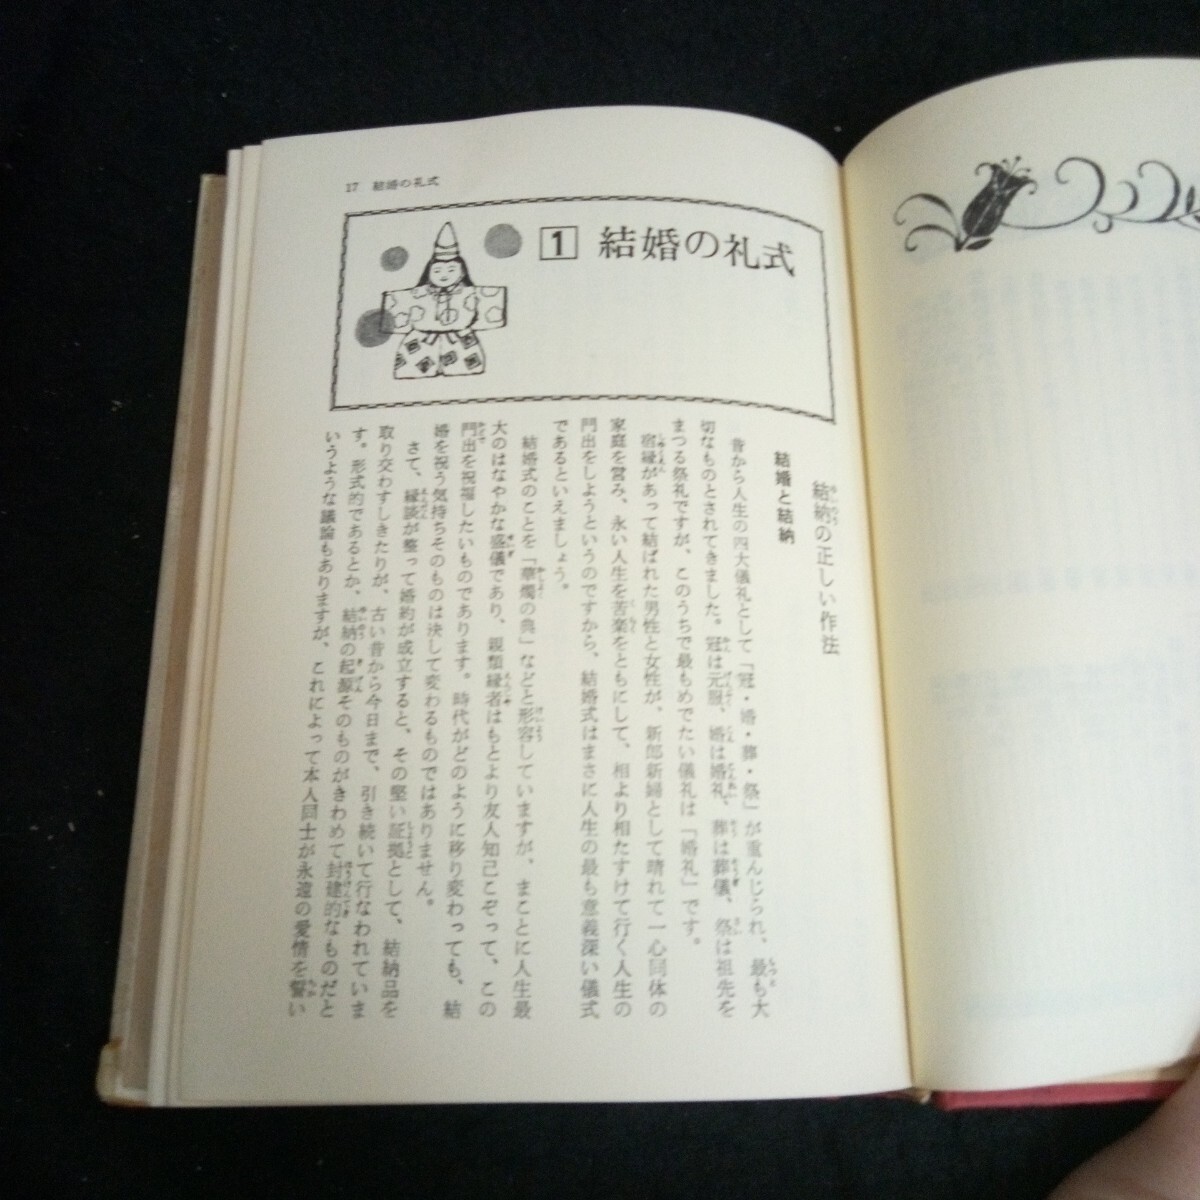 17 結婚の礼式
1 結婚の礼式
結納の正しい作法
結婚と結納
昔から人生の四大儀礼として「冠・婚・葬・祭」が重んじられ、最も大
切なものとされてきました。冠は元服、婚は婚礼、葬は葬儀、祭は祖先を
まつる祭礼ですが、このうちで最もめでたい儀礼は「婚礼」です。
宿縁があって結ばれた男性と女性が、新郎新婦として晴れて一心同体の
家庭を営み、永い人生を苦楽をともにして、相より相たすけて行く人生の
門出をしようというのですから、結婚式はまさに人生の最も意義深い儀式
であるといえましょう。
結婚式のことを「華燭の典」などと形容していますが、まことに人生最
大のはなやかな盛儀であり、親類縁者はもとより友人知己こぞって、この
門出を祝福したいものであります。時代がどのように移り変わっても、結
婚を祝う気持ちそのものは決して変わるものではありません。
さて、縁談が整って婚約が成立すると、その堅い証拠として、結納品を
取り交わすしきたりが、古い昔から今日まで、引き続いて行なわれていま
す。形式的であるとか、結納の起源そのものがきわめて封建的なものだと
いうような議論もありますが、これによって本人同士が永遠の愛情を誓い